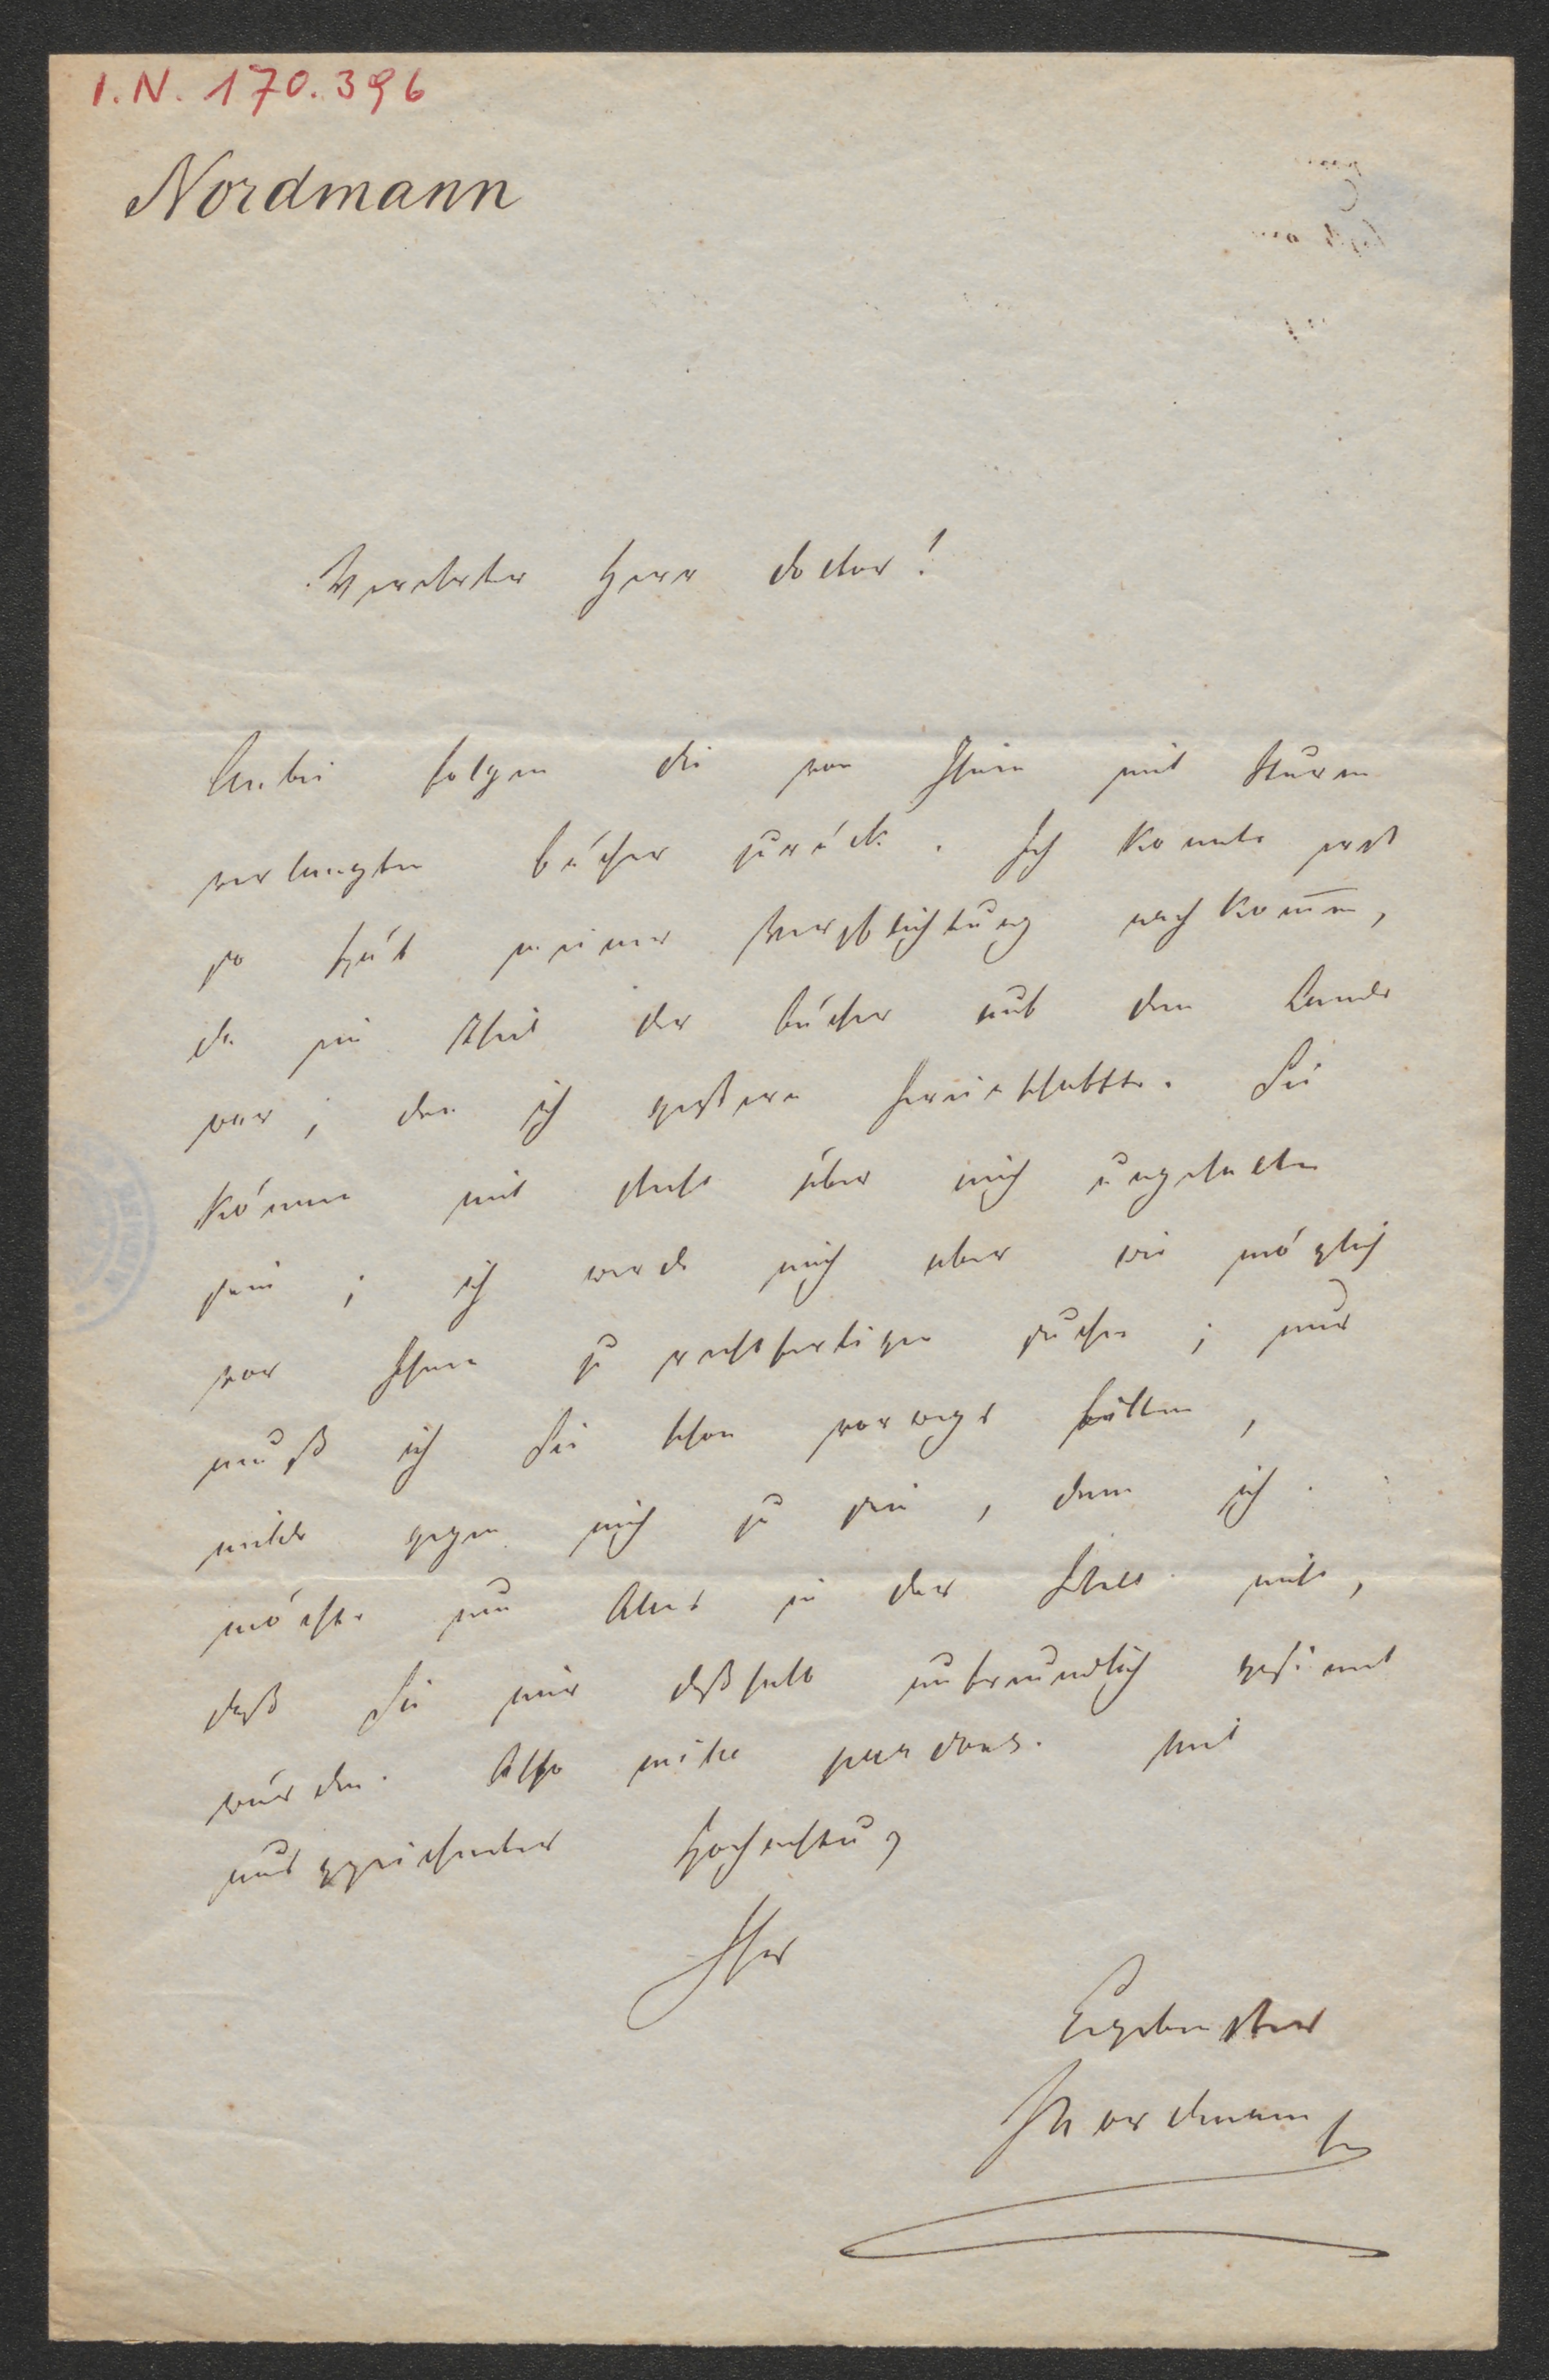 I.N. 170.396
Nordmann
Verehrter Herr Doctor!
Anbei folgen die von Ihnen mit Sturm
verlangten Bücher zurück. Ich konnte erst
so spät meiner Verpflichtung nachkom̄en,
da ein Theil der Bücher auf dem Lande
war, den ich gestern hereinschaffte. Sie
können mit Recht über mich ungehalten
sein; ich werde mich aber wie möglich
vor Ihnen zu rechtfertigen suchen; nur
muß ich Sie schon vorwegs bitten,
milde gegen mich zu sein, denn ich
möchte um Alles in der Welt nicht,
daß Sie mir deßhalb unfreundlich gesinnt
würden. Also mille pardons. Mit
ausgezeichneter Hochachtung
Ihr
Ergebenster
Nordmann